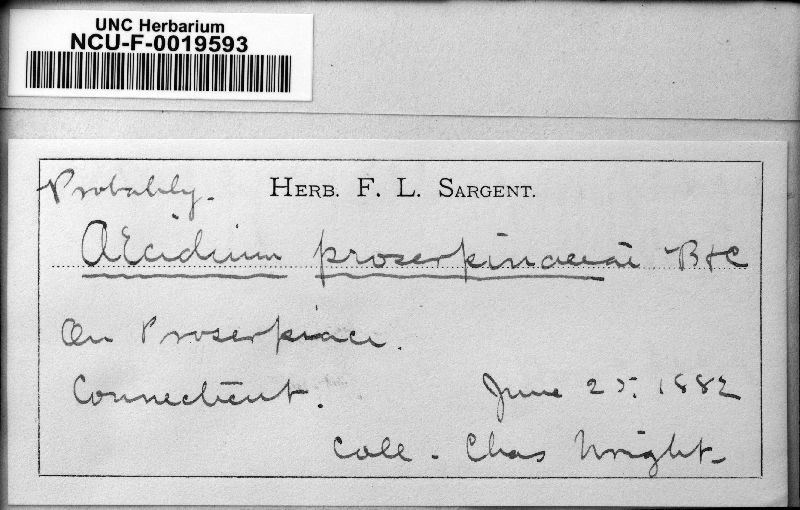 UNC Herbarium
NCU-F-0019593
Probably.
HERB. F. L. SARGENT.
Æcidium proserpinaceae B+C
On Proserpinace.
Connecticut. June 25. 1882
Coll - Chas Wright